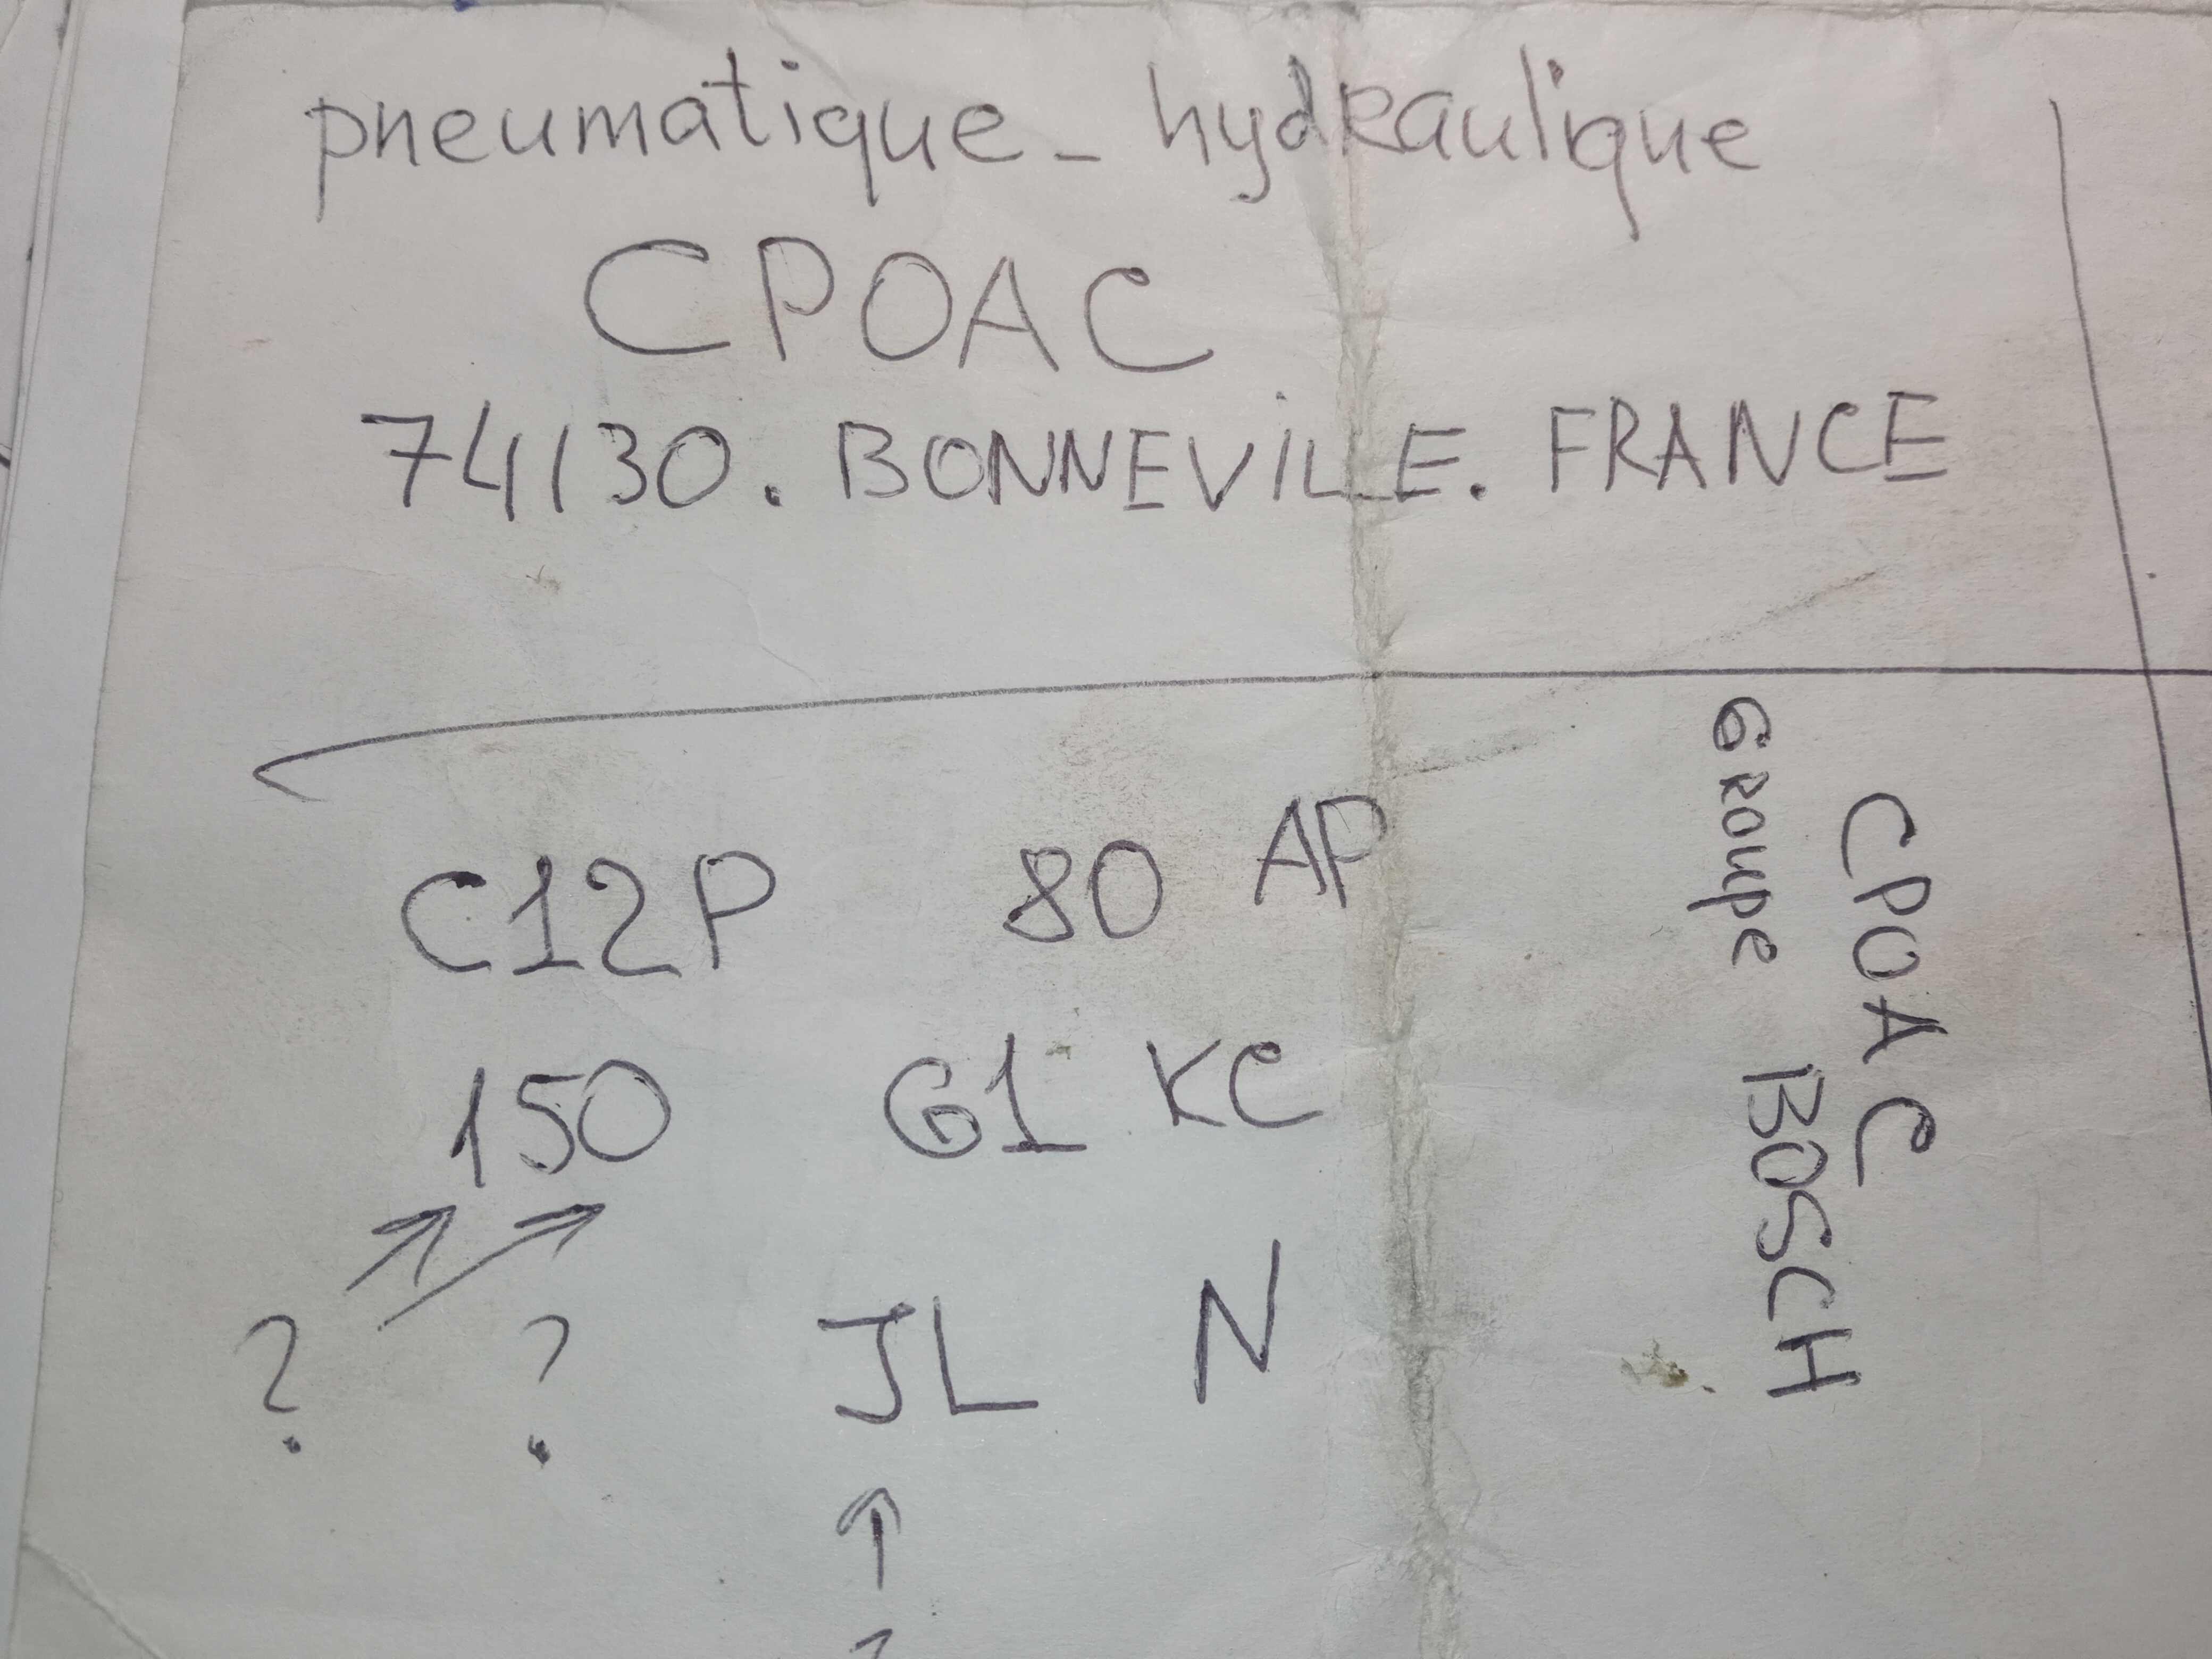 pneumatique - hydraulique
CPOAC
74130. BONNEVILLE. FRANCE
C12P 80 AP
150 G1 KC
? ? JL N
CPOAC
GROUPE BOSCH